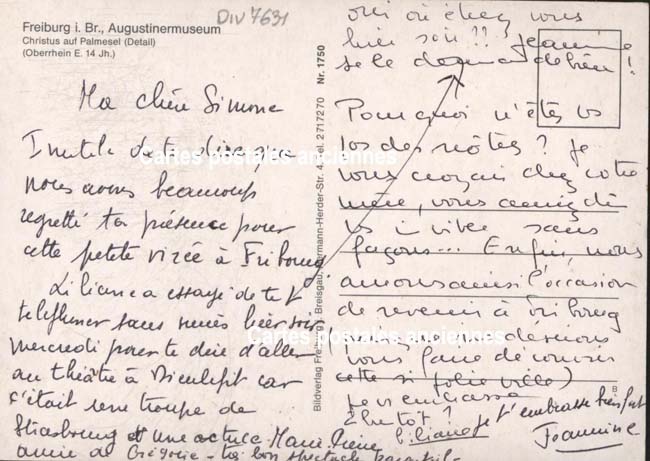 DIV 7631
Freiburg i. Br., Augustinermuseum
Christus auf Palmesel (Detail)
(Oberrhein E. 14 Jh.)
Ma chère Simone
Inutile de te dire que
nous avons beaucoup
regretté ta présence pour
cette petite virée à Fribourg
Liliane a essayé de te
téléphoner sans succès hier soir
mercredi pour te dire d'aller
au théâtre à Dieulefit car
c'était une troupe de
Strasbourg et une actrice Marie Pierre
amie de Grégoire - bon spectacle
Bildverlag Freiburg i. Breisgau, Hermann-Herder-Str. Tel. 2717270 Nr. 1750
chez vous
hier soir !! Jeannine
se le demande bien !
Pourquoi n'êtes vs
pas des nôtres ? je
vous croyais chez votre
mère, vous auriez dû
vs inviter sans
façons... Enfin, nous
aurons ainsi l'occasion
de revenir à Fribourg
(nous
vous faire découvrir
cette si jolie ville)
je vs embrasse
bientôt ?
Liliane
je t'embrasse très fort
Jeannine
Cartes postales anciennes
Cartes postales anciennes